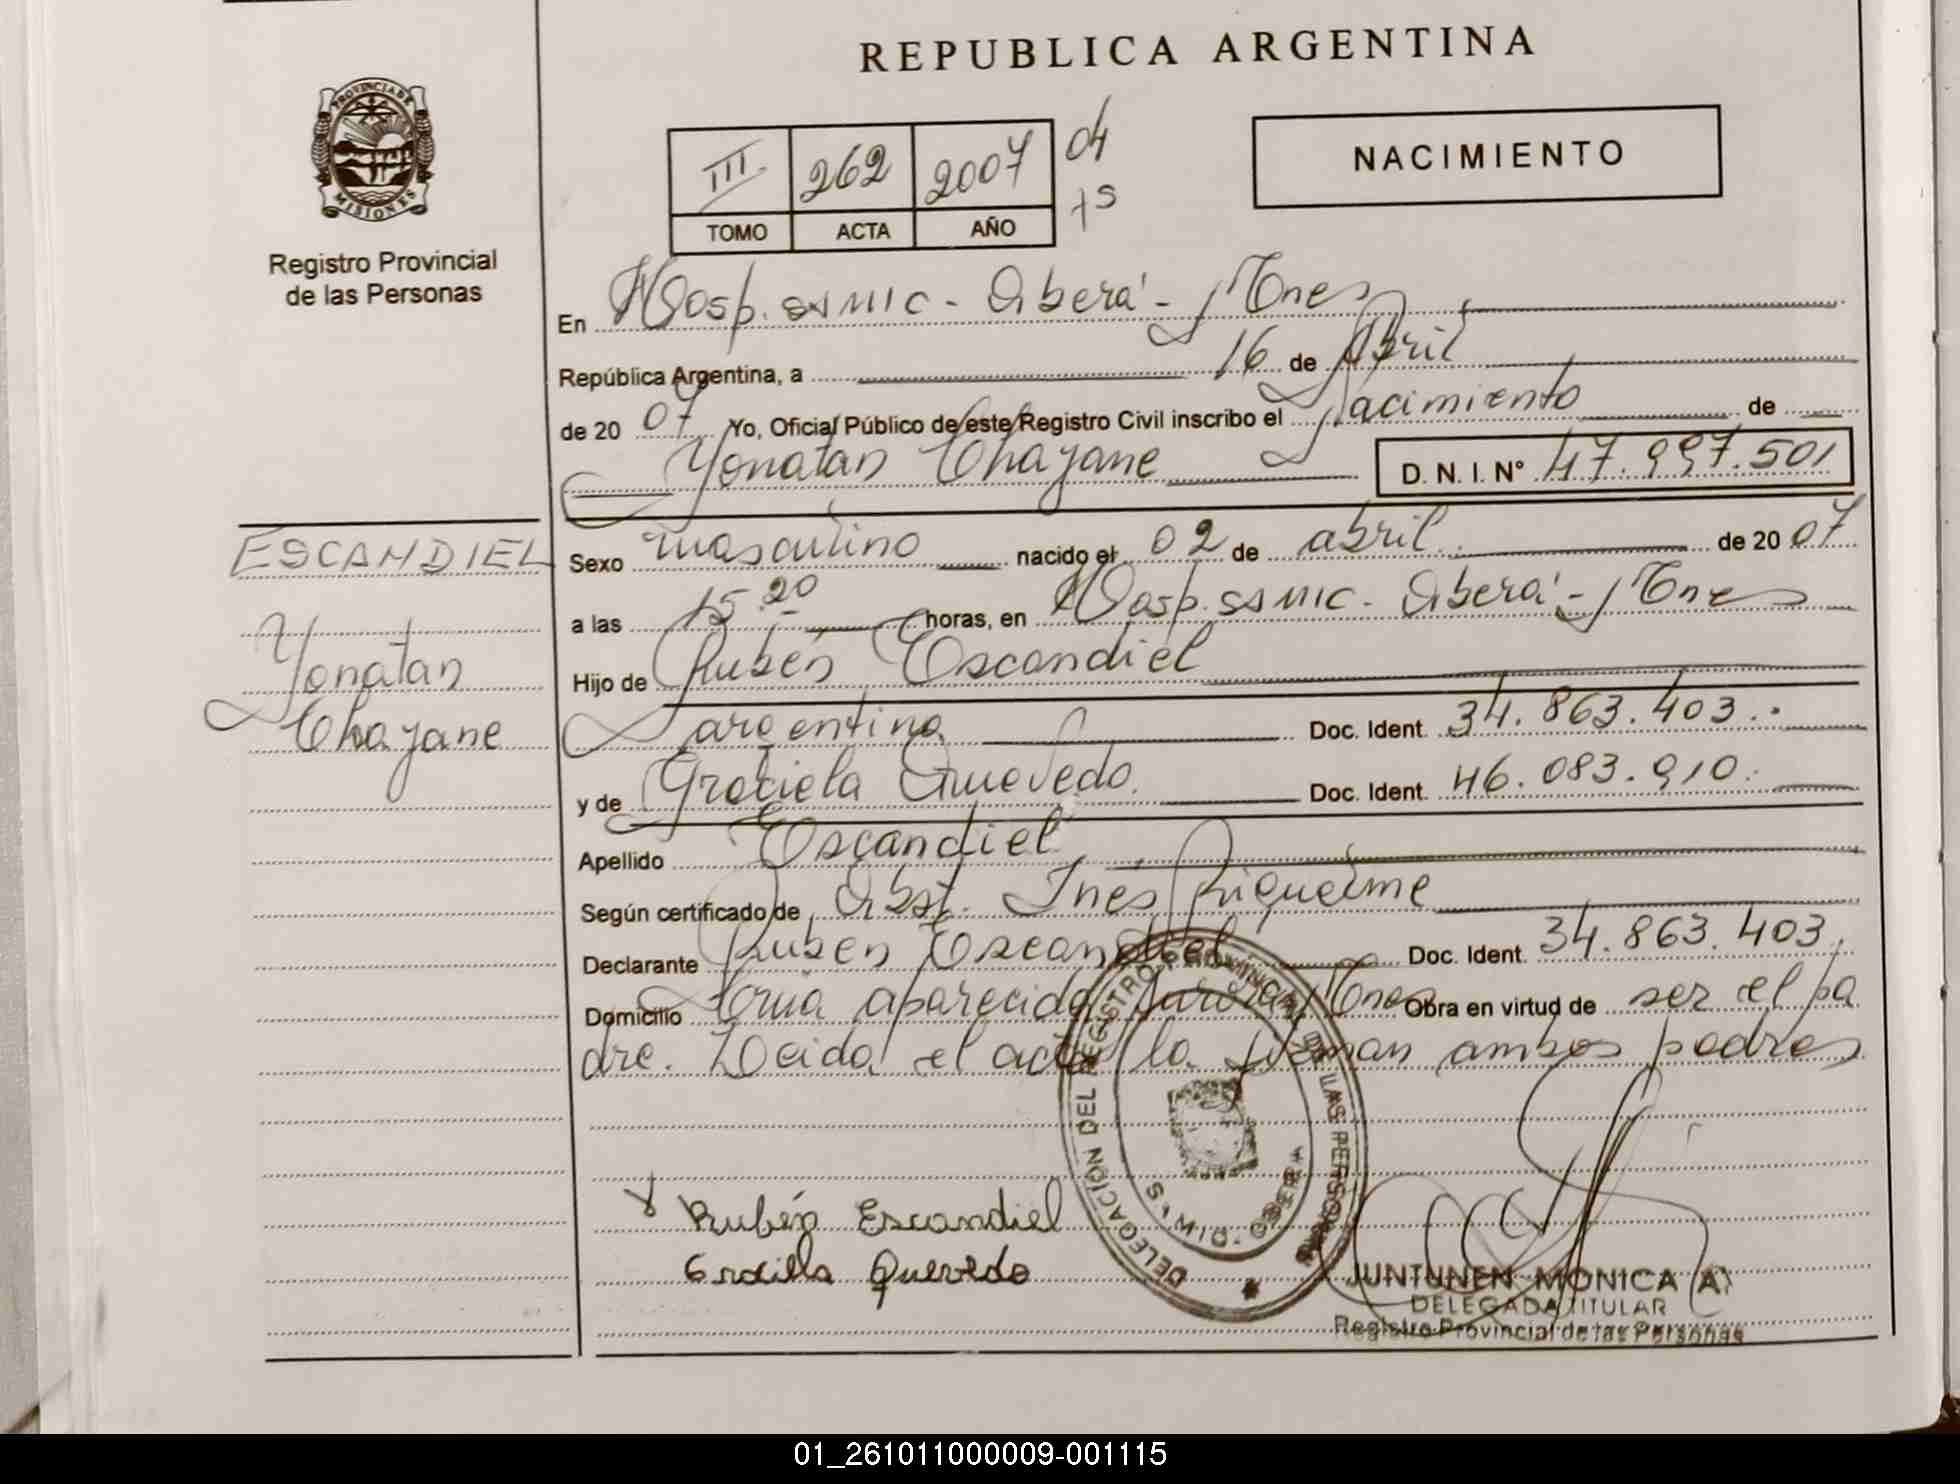 REPUBLICA ARGENTINA
PROVINCIA DE
MISIONES
Registro Provincial
de las Personas
III 262 2007
TOMO ACTA AÑO
NACIMIENTO
En Hosp. SAMIC - Oberá - Mnes
República Argentina, a 16 de Abril
de 20 07 Yo, Oficial Público de este Registro Civil inscribo el Nacimiento de
Yonatan Chayane D. N. I. N° 47.997.501
ESCANDIEL
Yonatan
Chayane
Sexo masculino nacido el 02 de abril de 20 07
a las 15.20 horas, en Hosp. SAMIC - Oberá - Mnes
Hijo de Rubén Escandiel
argentina Doc. Ident. 34.863.403.
y de Graciela Quevedo. Doc. Ident. 46.083.910.
Apellido Escandiel
Según certificado de Obst. Inés Riquelme
Declarante Rubén Escandiel Doc. Ident. 34.863.403.
Domicilio aparecida Aurora Mnes Obra en virtud de ser el pa
dre. Leida el acta la firman ambos padres
Rubén Escandiel
Quevedo
DELEGACIÓN DEL REGISTRO PROVINCIAL DE LAS PERSONAS
JUNTUNEN MONICA A
DELEGADA TITULAR
Registro Provincial de las Personas
01_261011000009-001115